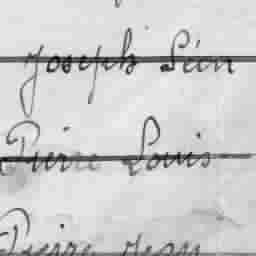 Joseph Léin
Pierre Louis
Pierre Jean